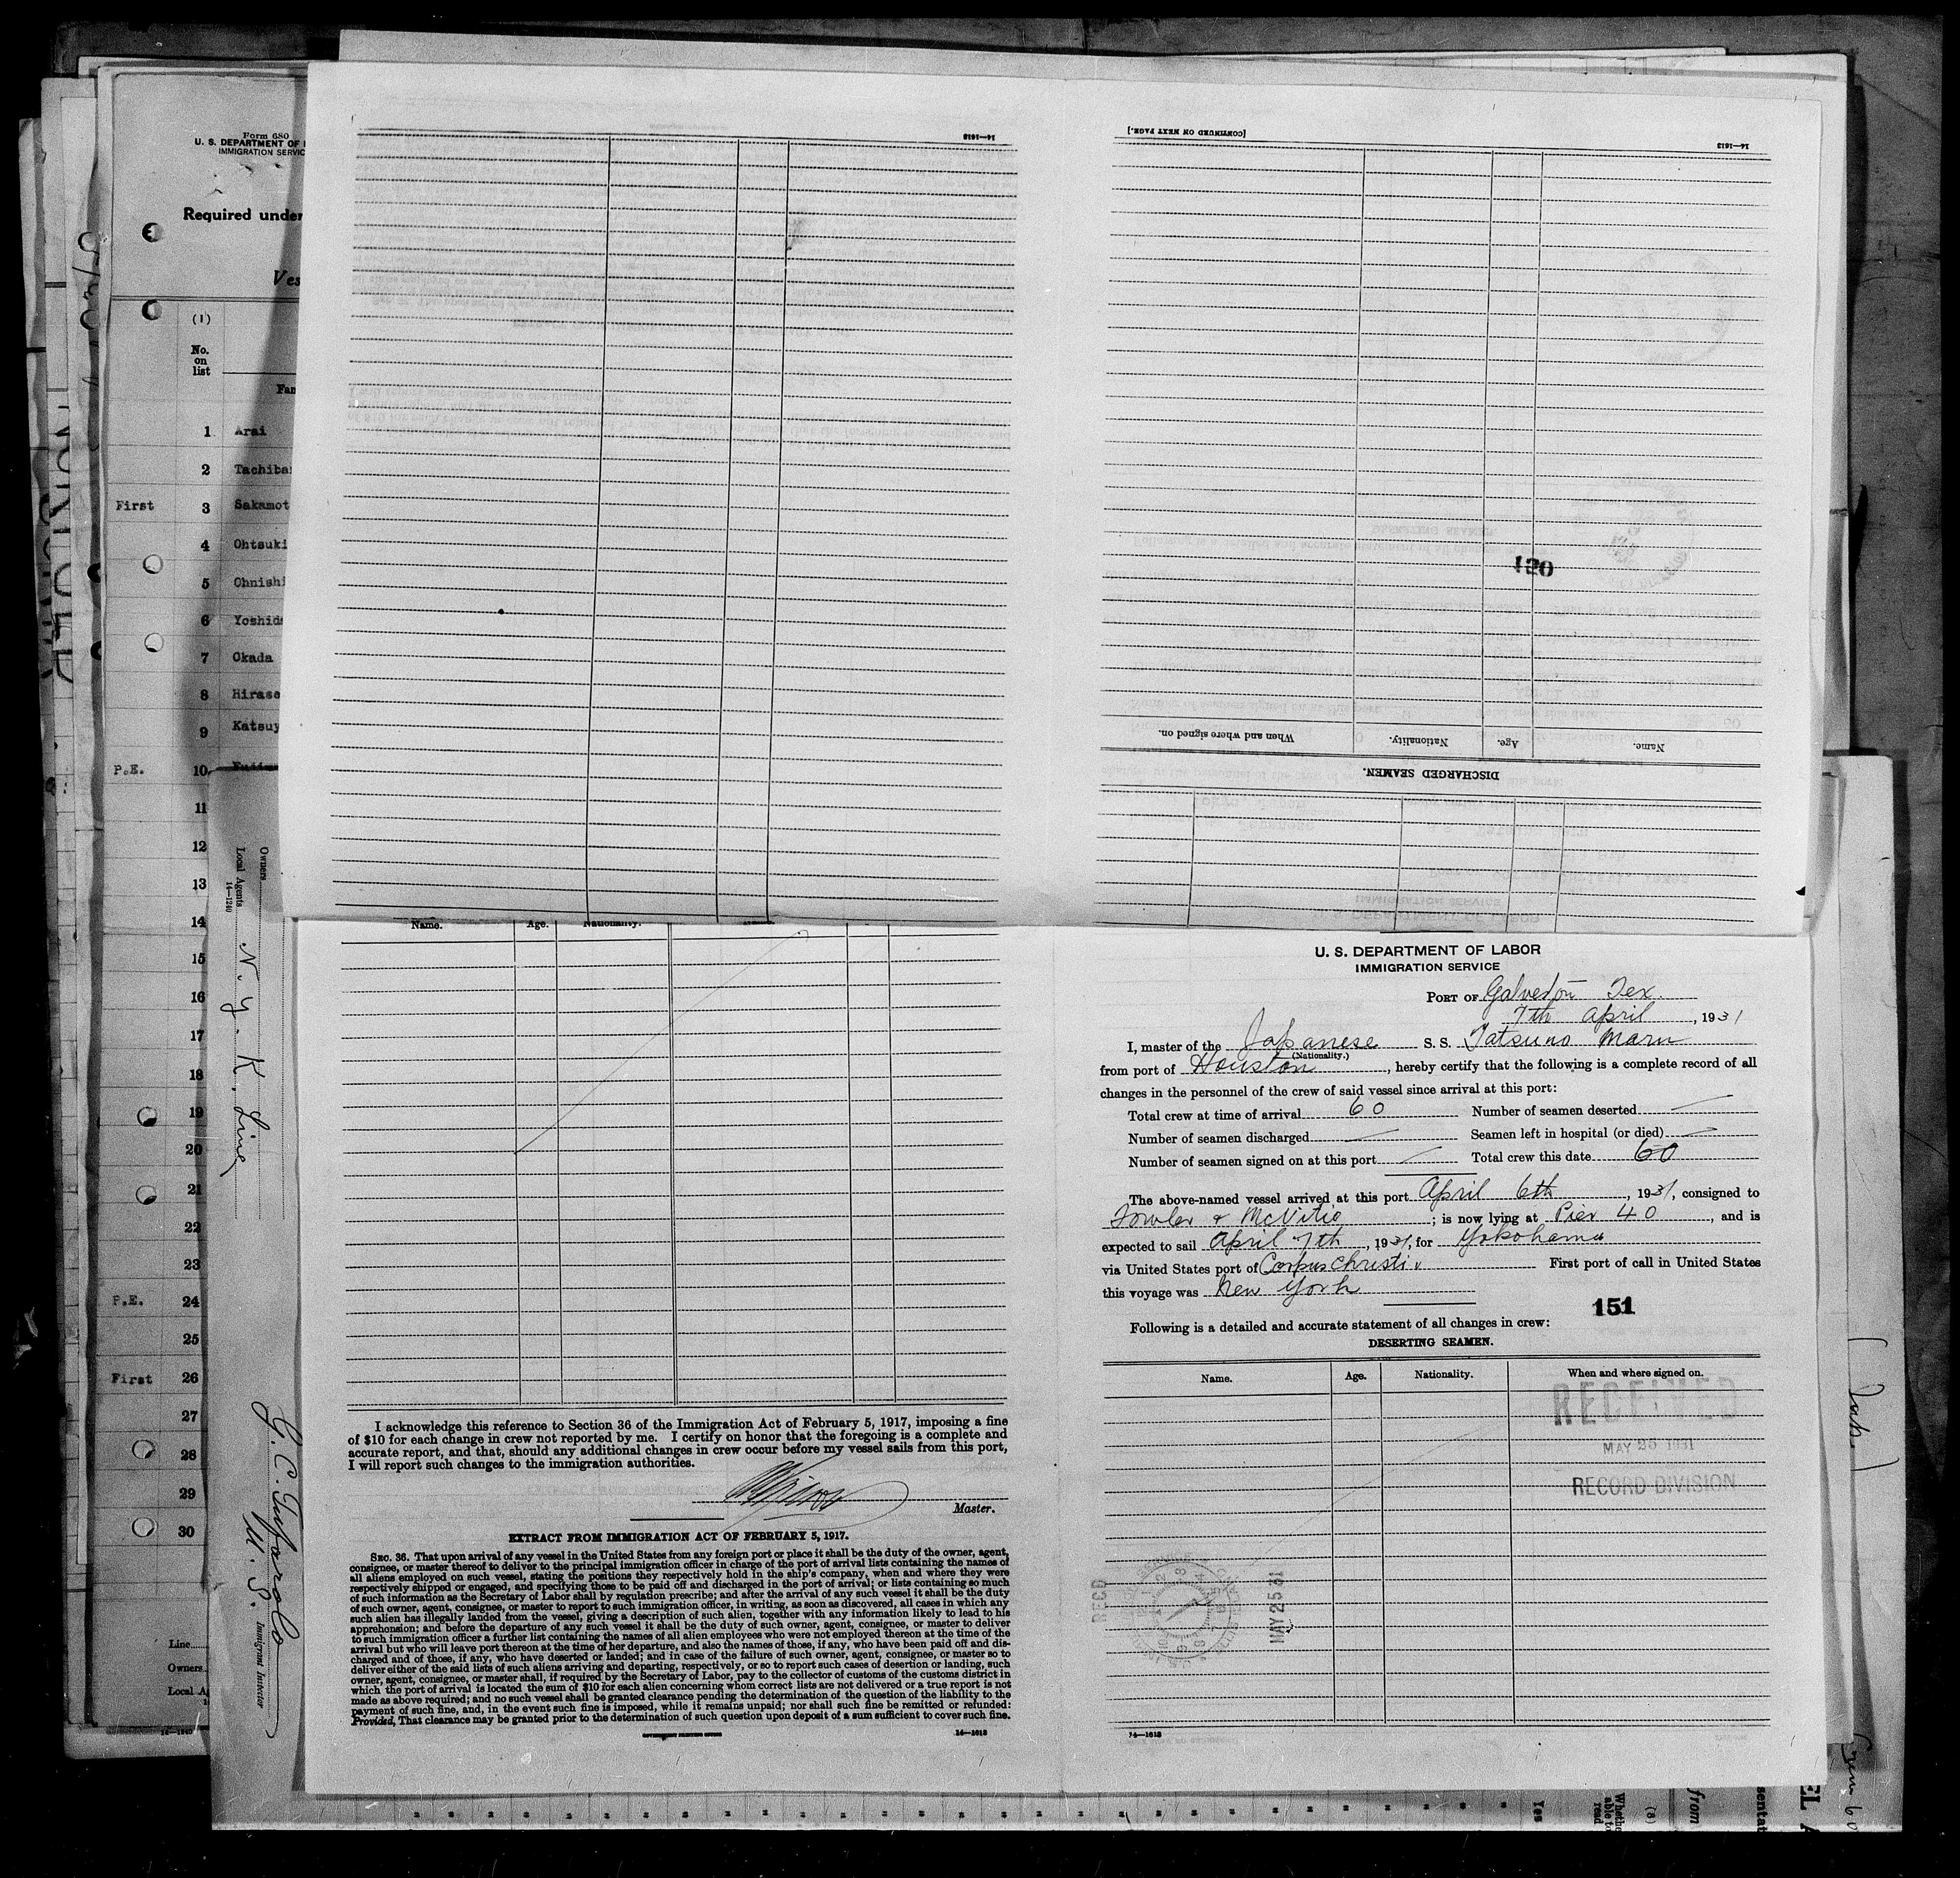 Form 680
U. S. DEPARTMENT OF
IMMIGRATION SERVIC
Required under
Ves
(1)
No.
on
list
Fam
1 Arai
2 Tachiba
First 3 Sakamot
4 Ohtsuki
5 Ohnishi
6 Yoshida
7 Okada
8 Hirase
9 Katsuy
P.E. 10
11
12
13
14
15
16
17
18
19
20
21
22
23
P.E. 24
25
First 26
27
28
29
30
Line
Owners
Local A
14—1240
Owners
Local Agents N. Y. K. Line
14—1240
U. S. Immigrant Inspector
14—1613
[CONTINUED ON NEXT PAGE.]
14—1613
120
When and where signed on. Nationality. Age. Name.
DISCHARGED SEAMEN.
Name. Age. Nationality.
I acknowledge this reference to Section 36 of the Immigration Act of February 5, 1917, imposing a fine
of $10 for each change in crew not reported by me. I certify on honor that the foregoing is a complete and
accurate report, and that, should any additional changes in crew occur before my vessel sails from this port,
I will report such changes to the immigration authorities.
Master.
EXTRACT FROM IMMIGRATION ACT OF FEBRUARY 5, 1917.
SEC. 36. That upon arrival of any vessel in the United States from any foreign port or place it shall be the duty of the owner, agent,
consignee, or master thereof to deliver to the principal immigration officer in charge of the port of arrival lists containing the names of
all aliens employed on such vessel, stating the positions they respectively hold in the ship's company, when and where they were
respectively shipped or engaged, and specifying those to be paid off and discharged in the port of arrival; or lists containing so much
of such information as the Secretary of Labor shall by regulation prescribe; and after the arrival of any such vessel it shall be the duty
of such owner, agent, consignee, or master to report to such immigration officer, in writing, as soon as discovered, all cases in which any
such alien has illegally landed from the vessel, giving a description of such alien, together with any information likely to lead to his
apprehension; and before the departure of any such vessel it shall be the duty of such owner, agent, consignee, or master to deliver
to such immigration officer a further list containing the names of all alien employees who were not employed thereon at the time of the
arrival but who will leave port thereon at the time of her departure, and also the names of those, if any, who have been paid off and dis-
charged and of those, if any, who have deserted or landed; and in case of the failure of such owner, agent, consignee, or master so to
deliver either of the said lists of such aliens arriving and departing, respectively, or so to report such cases of desertion or landing, such
owner, agent, consignee, or master shall, if required by the Secretary of Labor, pay to the collector of customs of the customs district in
which the port of arrival is located the sum of $10 for each alien concerning whom correct lists are not delivered or a true report is not
made as above required; and no such vessel shall be granted clearance pending the determination of the question of the liability to the
payment of such fine, and, in the event such fine is imposed, while it remains unpaid; nor shall such fine be remitted or refunded:
Provided, That clearance may be granted prior to the determination of such question upon deposit of a sum sufficient to cover such fine.
GOVERNMENT PRINTING OFFICE 14—1613
U. S. DEPARTMENT OF LABOR
IMMIGRATION SERVICE
PORT OF Galveston Tex.
7th April, 1931
I, master of the Japanese S. S. Tatsuno Maru
(Nationality.)
from port of Houston, hereby certify that the following is a complete record of all
changes in the personnel of the crew of said vessel since arrival at this port:
Total crew at time of arrival 60 Number of seamen deserted
Number of seamen discharged Seamen left in hospital (or died)
Number of seamen signed on at this port Total crew this date 60
The above-named vessel arrived at this port April 6th, 1931, consigned to
Fowler & McVitie; is now lying at Pier 40, and is
expected to sail April 7th, 1931, for Yokohama
via United States port of Corpus Christi First port of call in United States
this voyage was New York
151
Following is a detailed and accurate statement of all changes in crew:
DESERTING SEAMEN.
Name. Age. Nationality. When and where signed on.
RECEIVED
MAY 25 1931
RECORD DIVISION
REC'D
MAY 25 31
14—1613
Yes
Whether
able to
read
(8)
from